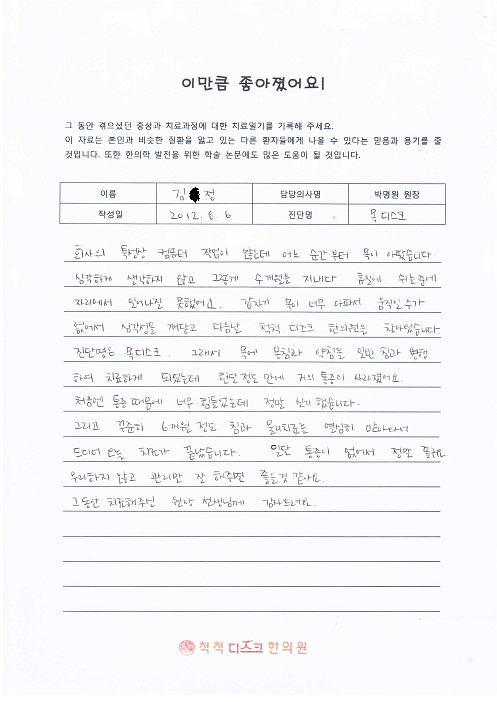 이만큼 좋아졌어요!
그 동안 겪으셨던 증상과 치료과정에 대한 치료일기를 기록해 주세요.
이 자료는 본인과 비슷한 질환을 앓고 있는 다른 환자들에게 나을 수 있다는 믿음과 용기를 줄
것입니다. 또한 한의학 발전을 위한 학술 논문에도 많은 도움이 될 것입니다.
이름 김 정 담당의사명 박명원 원장
작성일 2012. 8. 6 진단명 목디스크
회사의 특성상 컴퓨터 작업이 많은데 어느 순간부터 목이 아팠습니다.
심각하게 생각하지 않고 그렇게 수개월을 지내다 휴일에 쉬는중에
자리에서 일어나질 못했어요. 갑자기 목이 너무 아파서 움직일수가
없어서 심각성을 깨닫고 다음날 척척 디스크 한의원을 찾아왔습니다
진단명은 목디스크. 그래서 목에 봉침과 약침을 일반 침과 병행
하여 치료하게 되었는데 한달 정도 만에 거의 통증이 사라졌어요.
처음엔 통증 때문에 너무 힘들었는데 정말 신기했습니다.
그리고 꾸준히 6개월 정도 침과 물리치료를 열심히 받아서
드디어 오늘 치료가 끝났습니다. 일단 통증이 없어서 정말 좋구요
무리하지 않고 관리만 잘 해주면 좋을것 같아요.
그동안 치료해주신 원장 선생님께 감사드려요.
척척디스크한의원